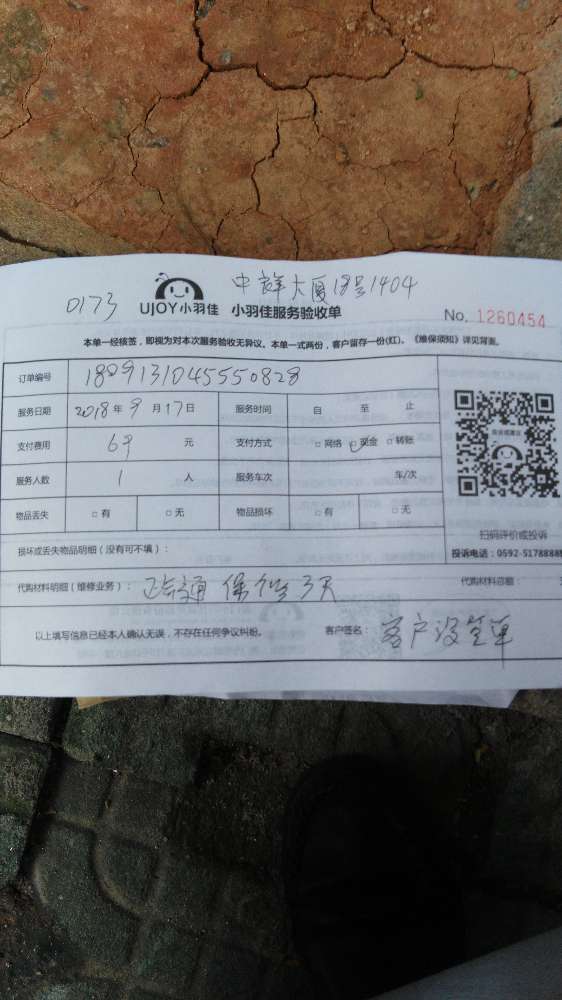 中祥大厦18号1404
0173 UJOY小羽佳 小羽佳服务验收单 No. 1260454
本单一经核签，即视为对本次服务验收无异议。本单一式两份，客户留存一份(红)。《维保须知》详见背面。
订单编号 1809131045550828
服务日期 2018年9月17日 服务时间 自 至 止
支付费用 69 元 支付方式 □网络 □现金 □转账
服务人数 1 人 服务车次 车/次
物品丢失 □有 □无 物品损坏 □有 □无
扫码评价或投诉
损坏或丢失物品明细（没有可不填）： 投诉电话：0592-5178888
代购材料明细（维修业务）： 通 保修3天 代购材料总额：
以上填写信息已经本人确认无误，不存在任何争议纠纷。 客户签名： 客户没签单